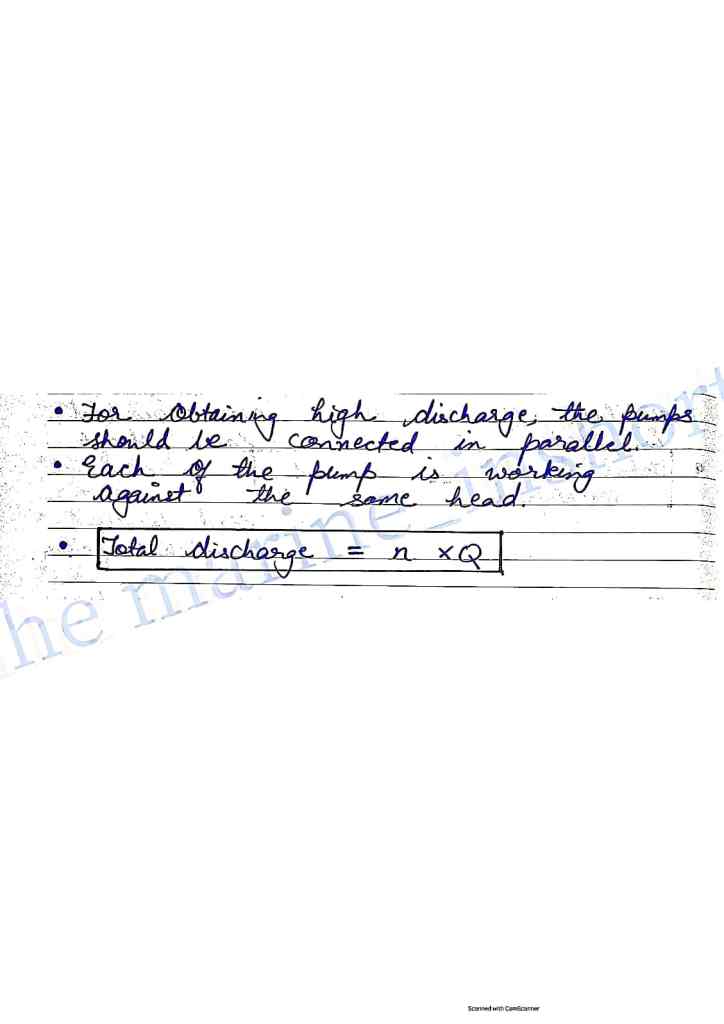 • For obtaining high discharge, the pumps
should be connected in parallel.
• Each of the pump is working
against the same head.
• Total discharge = n × Q
he marine_inshort
Scanned with CamScanner